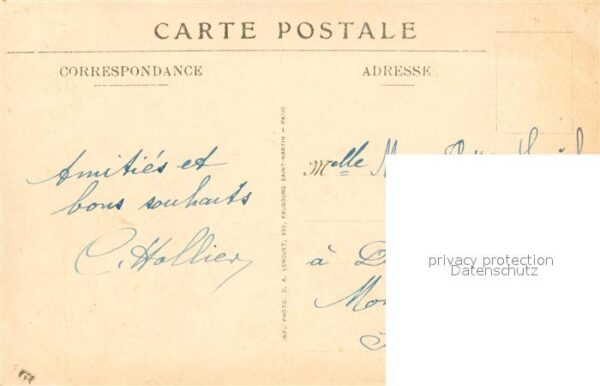 CARTE POSTALE
CORRESPONDANCE
ADRESSE
Amitiés et
bons souhaits
C. Hollier
IMP. PHOTO. D. A. LONGUET, 250, FAUBOURG SAINT-MARTIN — PARIS
Melle
à
privacy protection
Datenschutz